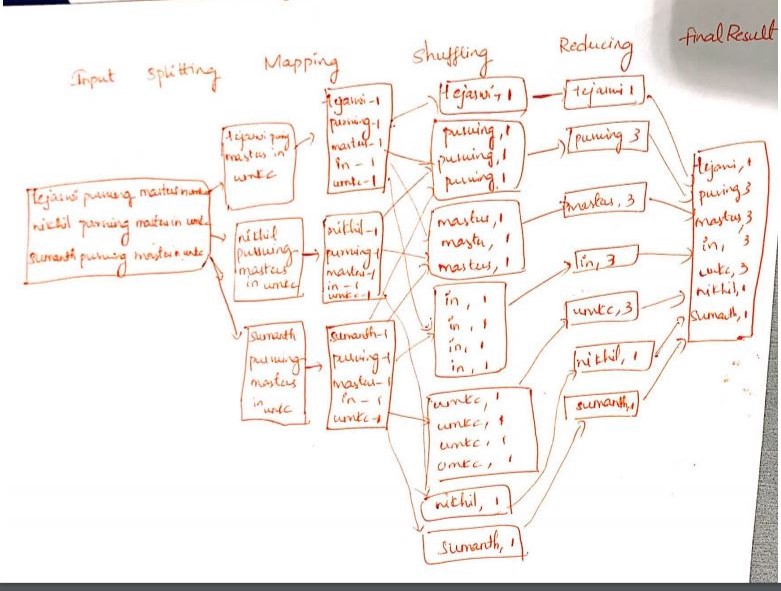 Input Splitting Mapping Shuffling Reducing final Result
tejaswi pursuing masters in umkc
nikhil pursuing masters in umkc
sumanth pursuing masters in umkc
tejaswi pursuing
masters in
umkc
nikhil
pursuing
masters
in umkc
sumanth
pursuing
masters
in umkc
tejaswi-1
pursuing-1
masters-1
in-1
umkc-1
nikhil-1
pursuing-1
masters-1
in-1
umkc-1
sumanth-1
pursuing-1
masters-1
in-1
umkc-1
tejaswi, 1
pursuing, 1
pursuing, 1
pursuing, 1
masters, 1
master, 1
masters, 1
in, 1
in, 1
in, 1
in, 1
umkc, 1
umkc, 1
umkc, 1
umkc, 1
nikhil, 1
sumanth, 1
tejaswi 1
pursuing 3
masters, 3
in, 3
umkc, 3
nikhil, 1
sumanth, 1
tejaswi, 1
pursuing 3
masters, 3
in, 3
umkc, 3
nikhil, 1
sumanth, 1